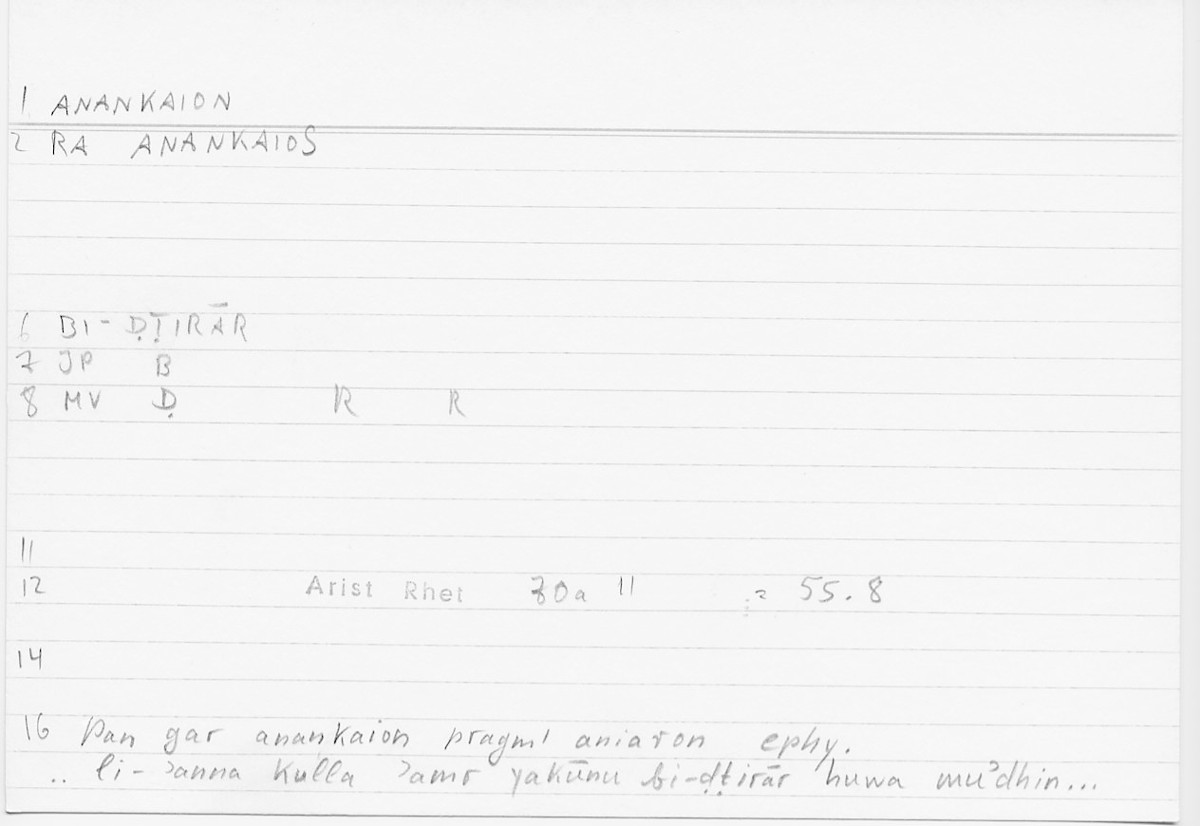 1 ANANKAION
2 RA ANANKAIOS
6 BI-ḌṬIRĀR
7 JP B
8 MV Ḍ R R
11
12 Arist Rhet 70a 11 = 55.8
14
16 Pan gar anankaion pragm' aniaron ephy.
.. li-ʾanna kulla ʾamr yakūnu bi-ḍṭirār huwa muʾdhin...